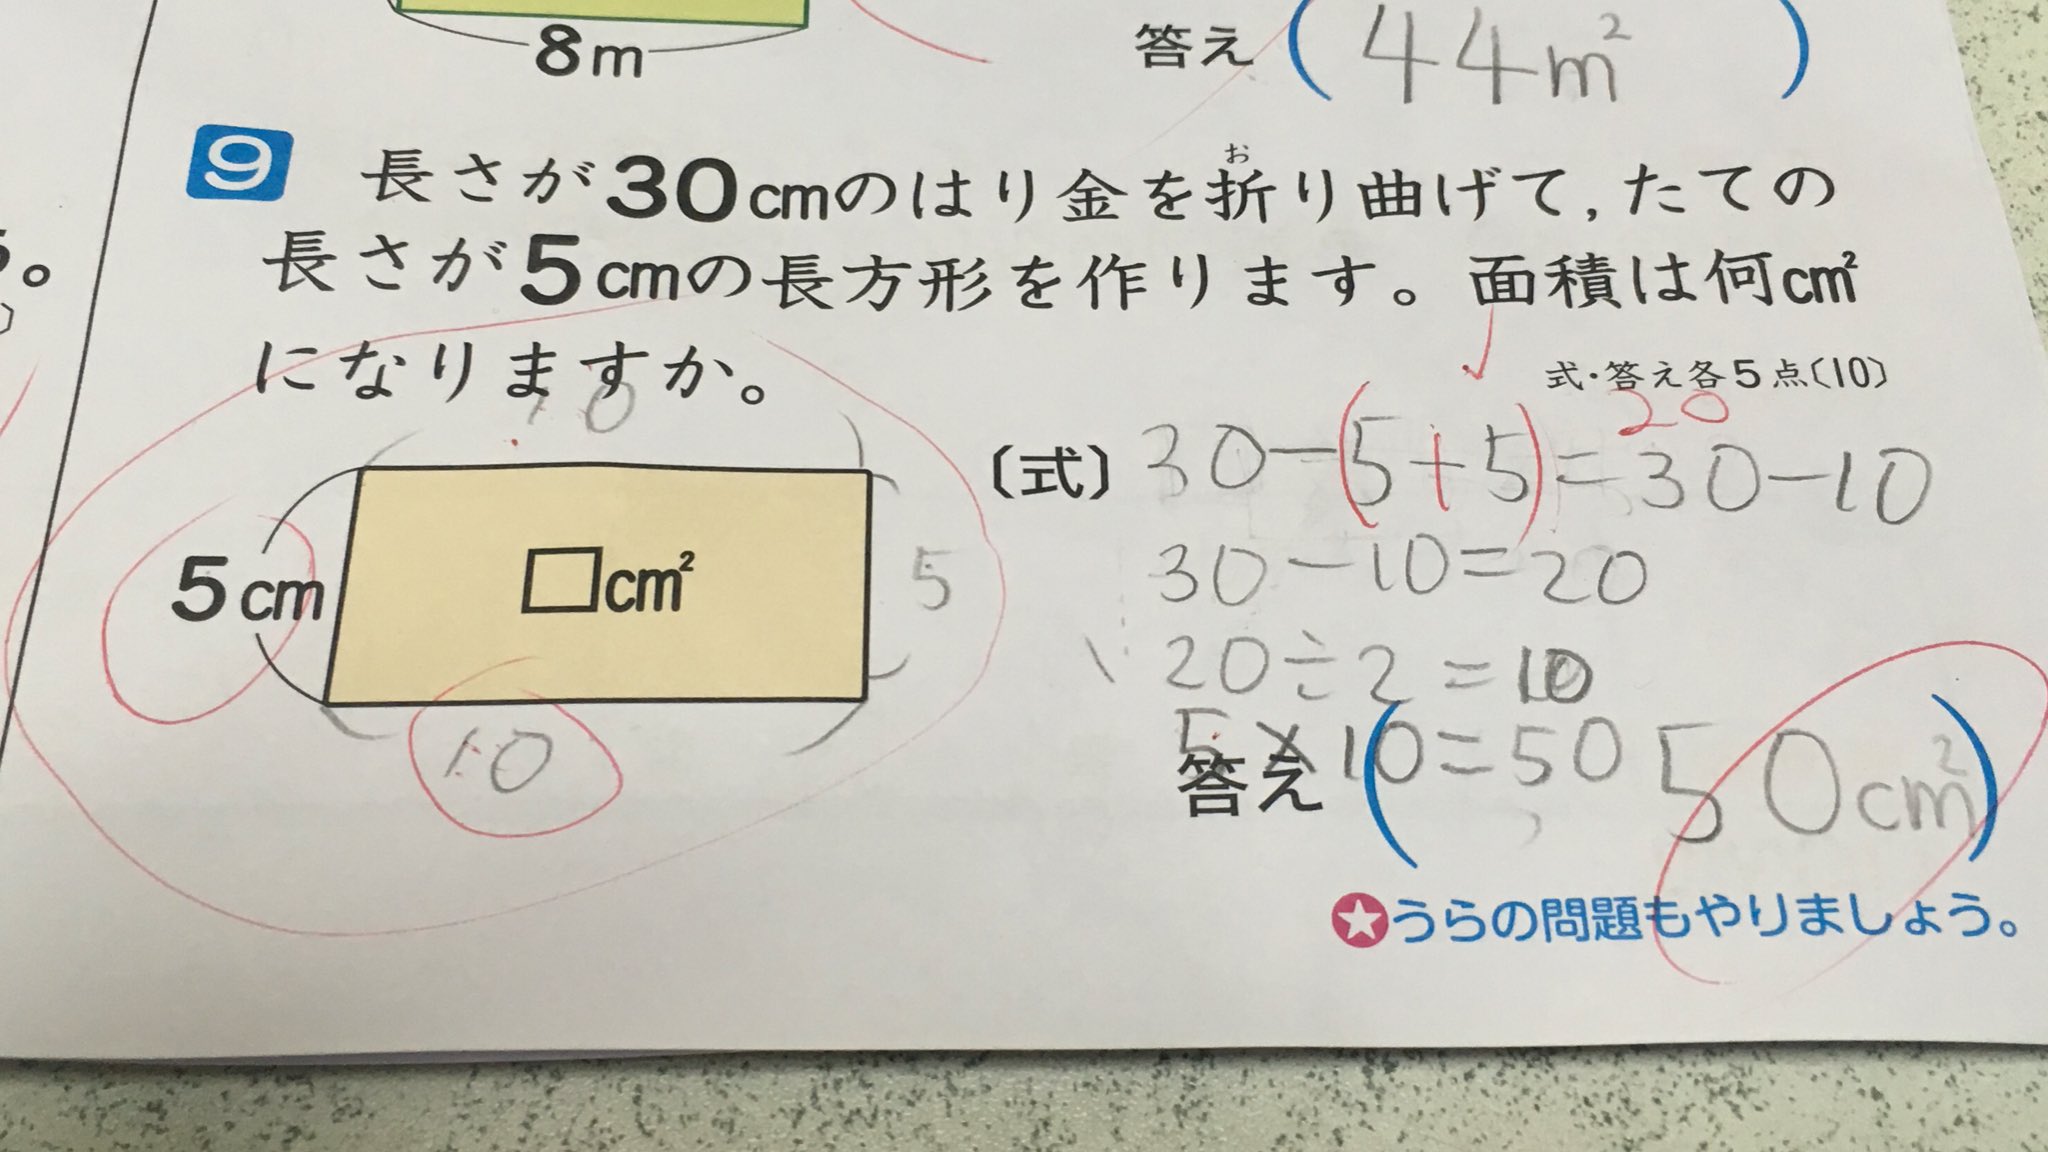 8m
答え(44m²)
9 長さが30cmのはり金を折り曲げて,たての
お
長さが5cmの長方形を作ります。面積は何cm²
になりますか。
式・答え各5点〔10〕
10
20
〔式〕30-(5+5)=30-10
5cm
□cm²
5
30-10=20
20÷2=10
10
5×10=50
答え(50cm²)
★うらの問題もやりましょう。